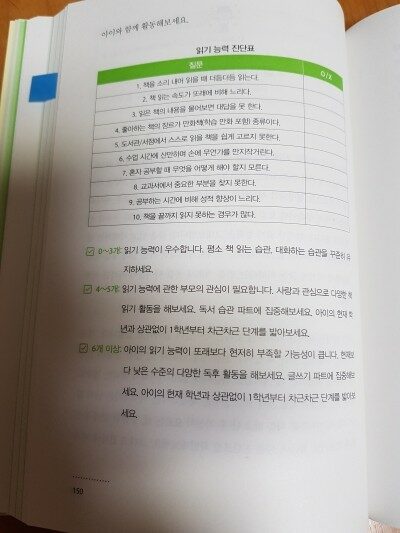 아이와 함께 활동해보세요.
읽기 능력 진단표
질문 O / X
1. 책을 소리 내어 읽을 때 더듬더듬 읽는다.
2. 책 읽는 속도가 또래에 비해 느리다.
3. 읽은 책의 내용을 물어보면 대답을 못 한다.
4. 좋아하는 책의 장르가 만화책(학습 만화 포함) 종류이다.
5. 도서관/서점에서 스스로 읽을 책을 쉽게 고르지 못한다.
6. 수업 시간에 산만하며 손에 무언가를 만지작거린다.
7. 혼자 공부할 때 무엇을 어떻게 해야 할지 모른다.
8. 교과서에서 중요한 부분을 찾지 못한다.
9. 공부하는 시간에 비해 성적 향상이 느리다.
10. 책을 끝까지 읽지 못하는 경우가 많다.
0~3개: 읽기 능력이 우수합니다. 평소 책 읽는 습관, 대화하는 습관을 꾸준히 유
지하세요.
4~5개: 읽기 능력에 관한 부모의 관심이 필요합니다. 사랑과 관심으로 다양한 책
읽기 활동을 해보세요. 독서 습관 파트에 집중해보세요. 아이의 현재 학
년과 상관없이 1학년부터 차근차근 단계를 밟아보세요.
6개 이상: 아이의 읽기 능력이 또래보다 현저히 부족할 가능성이 큽니다. 현재보
다 낮은 수준의 다양한 독후 활동을 해보세요. 글쓰기 파트에 집중해보
세요. 아이의 현재 학년과 상관없이 1학년부터 차근차근 단계를 밟아보
세요.
150